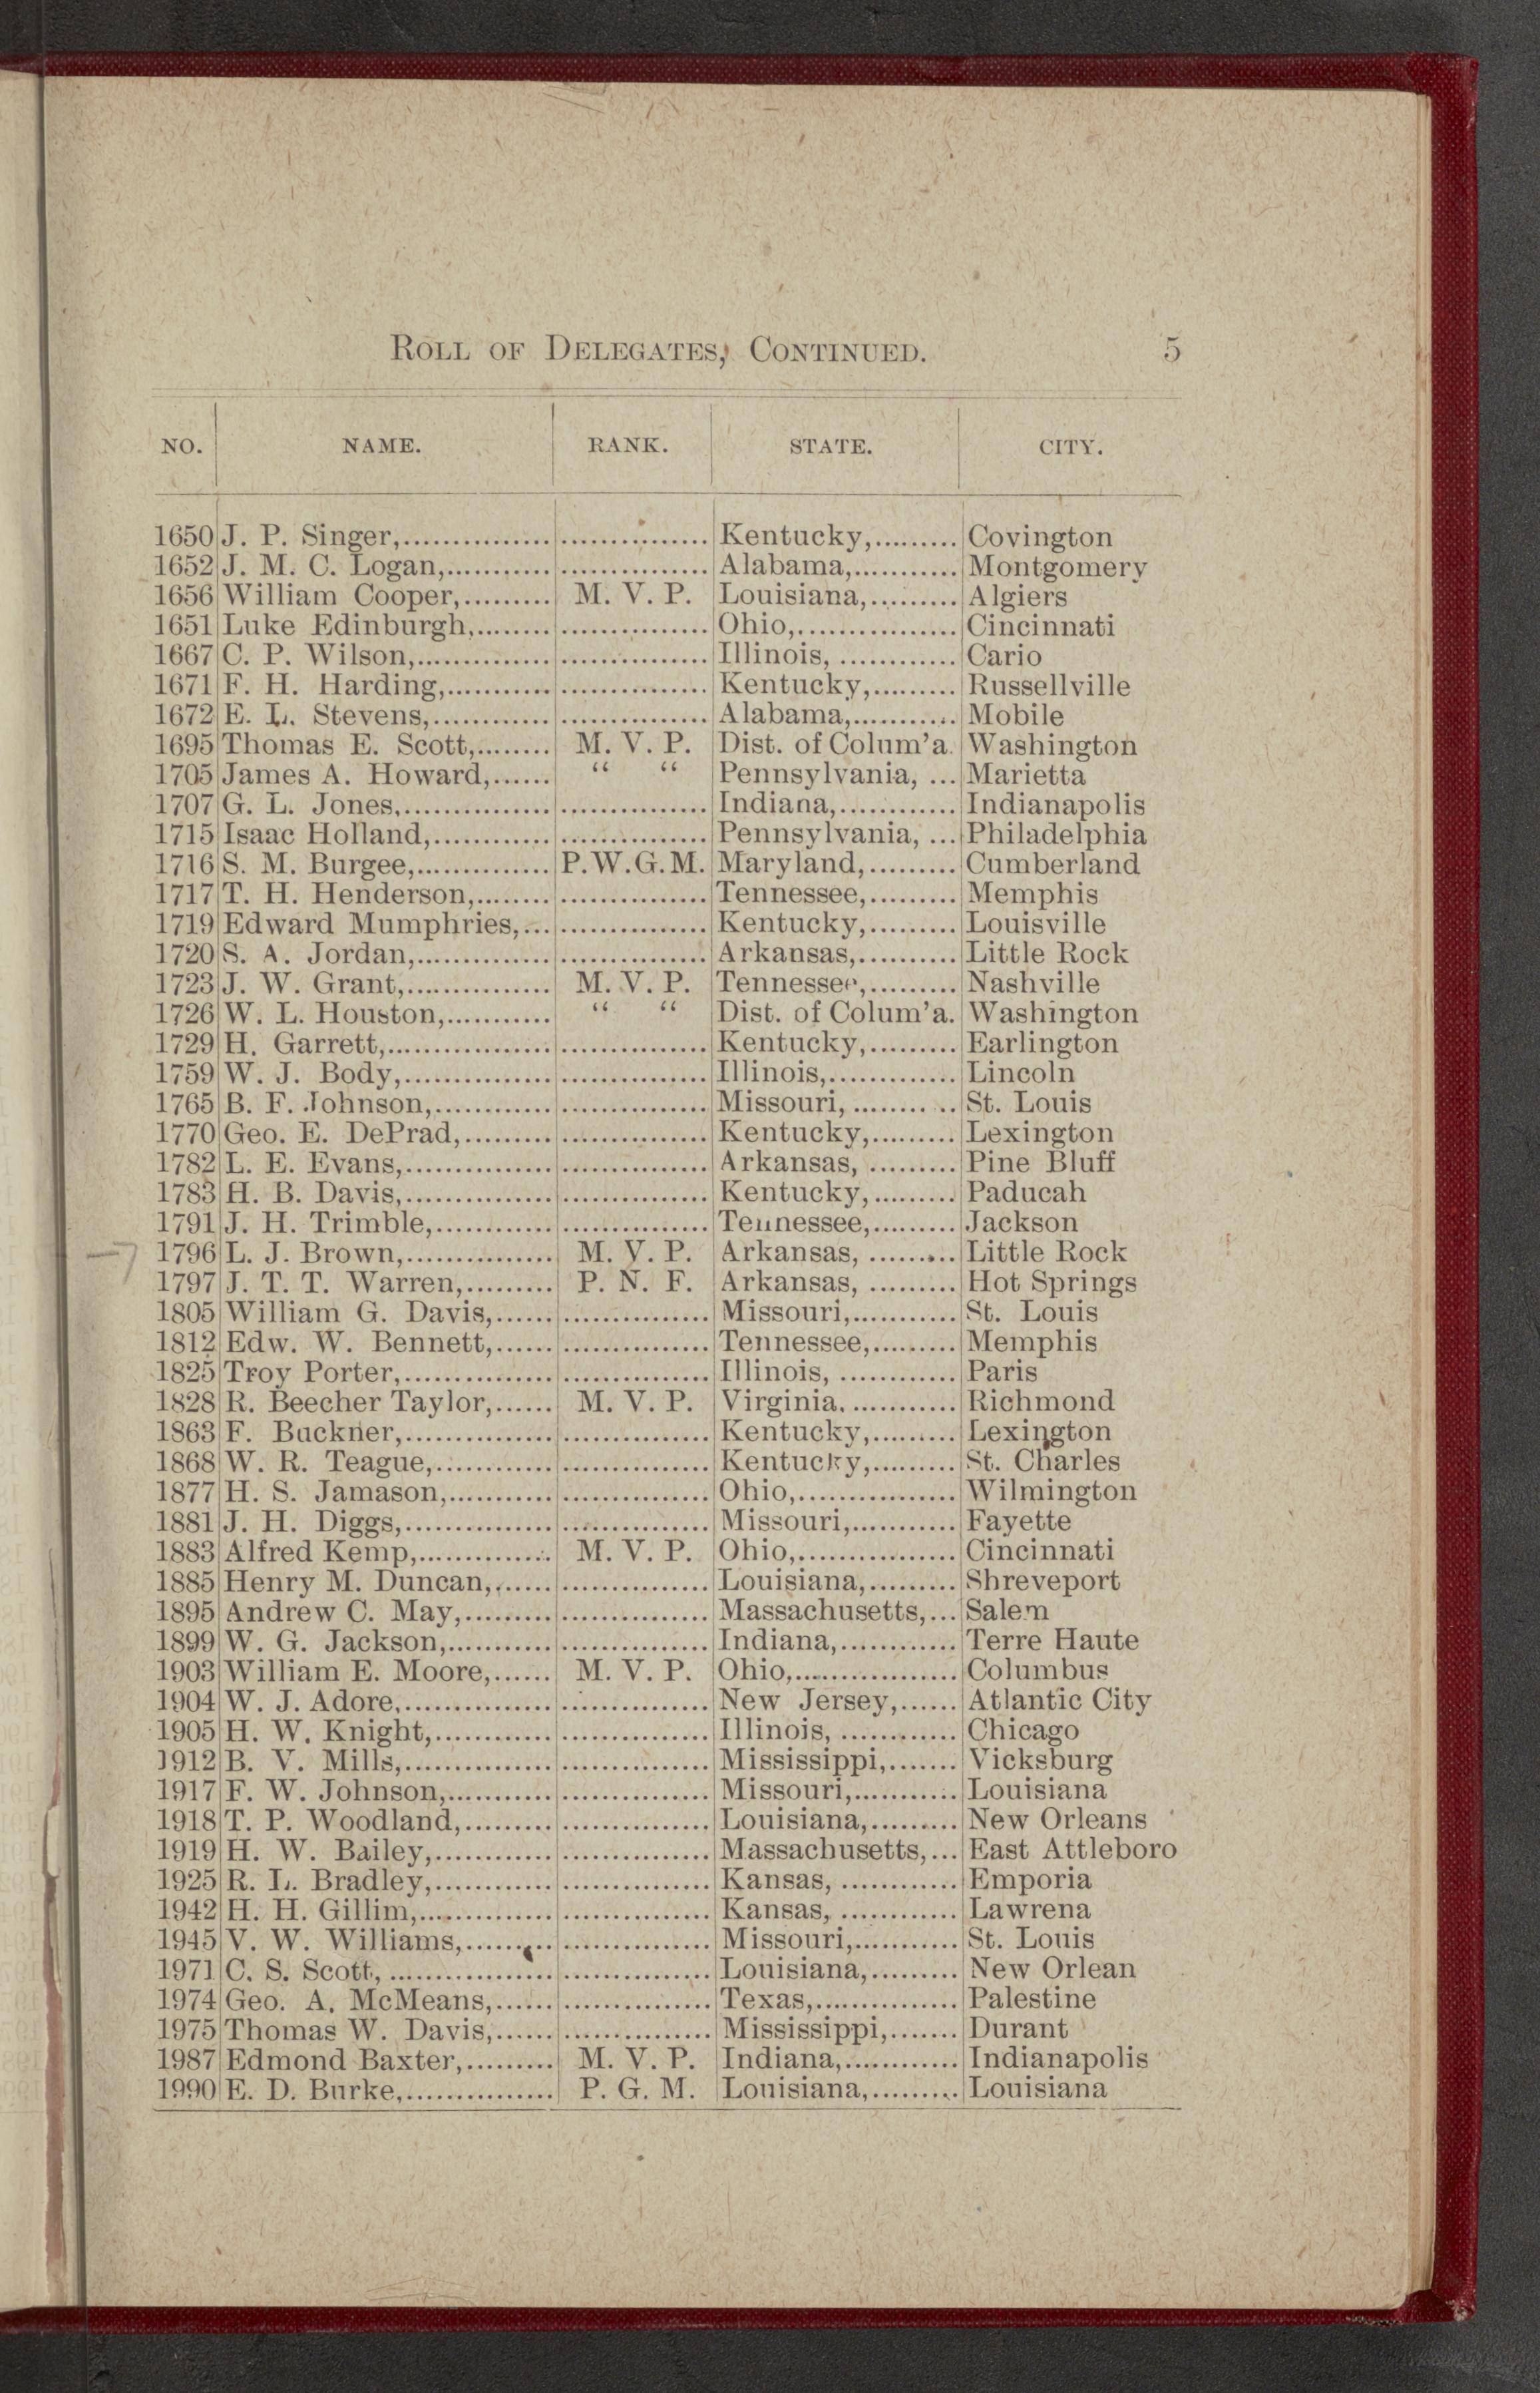 ROLL OF DELEGATES, CONTINUED. 5
NO. NAME. RANK. STATE. CITY.
1650 J. P. Singer,............... ............... Kentucky,......... Covington
1652 J. M. C. Logan,........... ............... Alabama,........... Montgomery
1656 William Cooper,......... M. V. P. Louisiana,......... Algiers
1651 Luke Edinburgh,........ ............... Ohio,................. Cincinnati
1667 C. P. Wilson,.............. ............... Illinois, ............ Cario
1671 F. H. Harding,........... ............... Kentucky,......... Russellville
1672 E. L. Stevens,............ ............... Alabama,........... Mobile
1695 Thomas E. Scott,........ M. V. P. Dist. of Colum'a. Washington
1705 James A. Howard,...... “ “ Pennsylvania, ... Marietta
1707 G. L. Jones,............... ............... Indiana,............ Indianapolis
1715 Isaac Holland,............ ............... Pennsylvania, ... Philadelphia
1716 S. M. Burgee,.............. P.W.G.M. Maryland,......... Cumberland
1717 T. H. Henderson,........ ............... Tennessee,......... Memphis
1719 Edward Mumphries,... ............... Kentucky,......... Louisville
1720 S. A. Jordan,.............. ............... Arkansas,.......... Little Rock
1723 J. W. Grant,............... M. V. P. Tennessee,......... Nashville
1726 W. L. Houston,........... “ “ Dist. of Colum'a. Washington
1729 H. Garrett,................. ............... Kentucky,......... Earlington
1759 W. J. Body,............... ............... Illinois,............. Lincoln
1765 B. F. Johnson,............ ............... Missouri, ........ .. St. Louis
1770 Geo. E. DePrad,......... ............... Kentucky,......... Lexington
1782 L. E. Evans,............... ............... Arkansas, ......... Pine Bluff
1783 H. B. Davis,............... ............... Kentucky,......... Paducah
1791 J. H. Trimble,............ ............... Tennessee,......... Jackson
1796 L. J. Brown,............... M. V. P. Arkansas, ......... Little Rock
1797 J. T. T. Warren,......... P. N. F. Arkansas, ......... Hot Springs
1805 William G. Davis,...... ............... Missouri,........... St. Louis
1812 Edw. W. Bennett,...... ............... Tennessee,......... Memphis
1825 Troy Porter,............... ............... Illinois, ............ Paris
1828 R. Beecher Taylor,...... M. V. P. Virginia. ........... Richmond
1863 F. Buckner,............... ............... Kentucky,......... Lexington
1868 W. R. Teague,............ ............... Kentucky,......... St. Charles
1877 H. S. Jamason,........... ............... Ohio,................ Wilmington
1881 J. H. Diggs,............... ............... Missouri,........... Fayette
1883 Alfred Kemp,.............. M. V. P. Ohio,................ Cincinnati
1885 Henry M. Duncan,...... ............... Louisiana,......... Shreveport
1895 Andrew C. May,......... ............... Massachusetts,... Salem
1899 W. G. Jackson,........... ............... Indiana,............ Terre Haute
1903 William E. Moore,...... M. V. P. Ohio,................. Columbus
1904 W. J. Adore,............... ............... New Jersey,...... Atlantic City
1905 H. W. Knight,............ ............... Illinois, ............ Chicago
1912 B. V. Mills,............... ............... Mississippi,....... Vicksburg
1917 F. W. Johnson,........... ............... Missouri,........... Louisiana
1918 T. P. Woodland,......... ............... Louisiana,......... New Orleans
1919 H. W. Bailey,............ ............... Massachusetts,... East Attleboro
1925 R. L. Bradley,............ ............... Kansas, ............ Emporia
1942 H. H. Gillim,.............. ............... Kansas, ............ Lawrena
1945 V. W. Williams,......... ............... Missouri,........... St. Louis
1971 C. S. Scott, ................. ............... Louisiana,......... New Orlean
1974 Geo. A. McMeans,...... ............... Texas,............... Palestine
1975 Thomas W. Davis,...... ............... Mississippi,....... Durant
1987 Edmond Baxter,......... M. V. P. Indiana,............ Indianapolis
1990 E. D. Burke,............... P. G. M. Louisiana,......... Louisiana